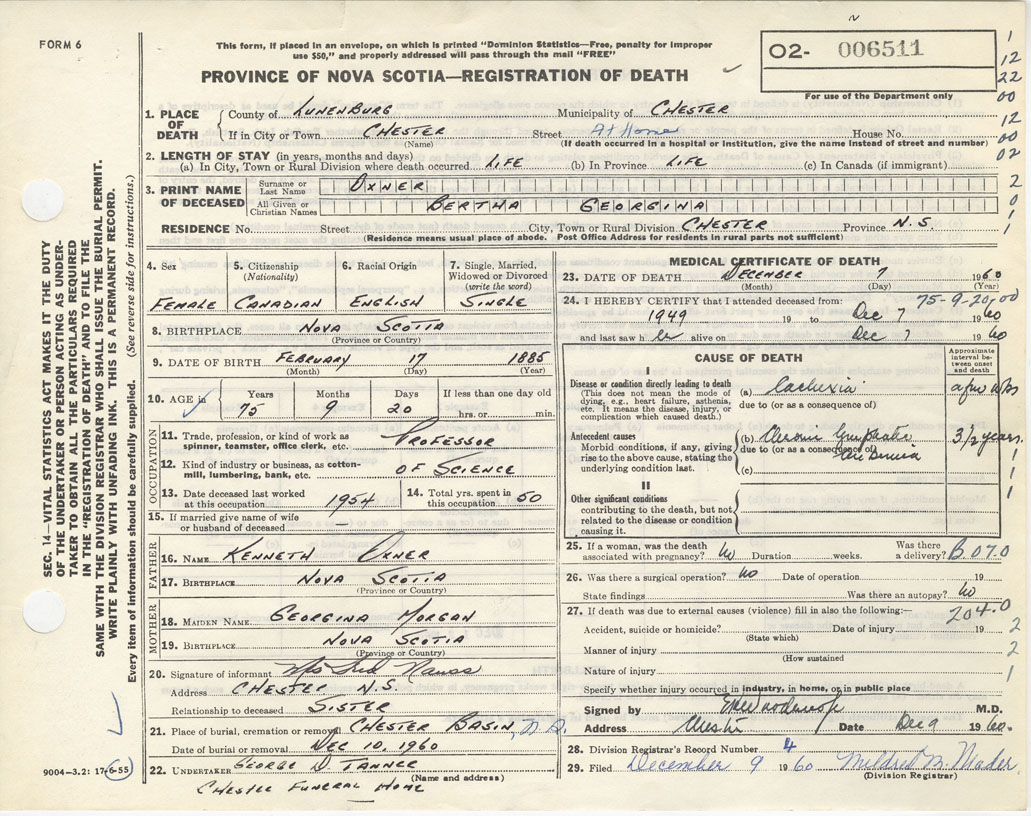 FORM 6
This form, if placed in an envelope, on which is printed "Dominion Statistics—Free, penalty for improper
use $50," and properly addressed will pass through the mail "FREE"
PROVINCE OF NOVA SCOTIA—REGISTRATION OF DEATH
O2- 006511
For use of the Department only
1
12
22
00
12
00
02
2
0
1
1
1. PLACE OF DEATH
County of LUNENBURG Municipality of CHESTER
If in City or Town CHESTER Street At Home House No.
(Name) (If death occurred in a hospital or institution, give the name instead of street and number)
2. LENGTH OF STAY (in years, months and days)
(a) In City, Town or Rural Division where death occurred LIFE (b) In Province LIFE (c) In Canada (if immigrant)
3. PRINT NAME OF DECEASED
Surname or Last Name OXNER
All Given or Christian Names BERTHA GEORGINA
RESIDENCE No. Street City, Town or Rural Division CHESTER Province N.S.
(Residence means usual place of abode. Post Office Address for residents in rural parts not sufficient)
4. Sex FEMALE
5. Citizenship (Nationality) CANADIAN
6. Racial Origin ENGLISH
7. Single, Married, Widowed or Divorced (write the word) SINGLE
8. BIRTHPLACE NOVA SCOTIA
(Province or Country)
9. DATE OF BIRTH FEBRUARY 17 1885
(Month) (Day) (Year)
10. AGE in Years Months Days If less than one day old
75 9 20 hrs. or min.
OCCUPATION
11. Trade, profession, or kind of work as spinner, teamster, office clerk, etc. PROFESSOR
12. Kind of industry or business, as cotton-mill, lumbering, bank, etc. OF SCIENCE
13. Date deceased last worked at this occupation 1954
14. Total yrs. spent in this occupation 50
15. If married give name of wife or husband of deceased —
FATHER
16. NAME KENNETH OXNER
17. BIRTHPLACE NOVA SCOTIA
(Province or Country)
MOTHER
18. MAIDEN NAME GEORGINA MORGAN
19. BIRTHPLACE NOVA SCOTIA
(Province or Country)
20. Signature of informant Mrs Fred
Address CHESTER N.S.
Relationship to deceased SISTER
21. Place of burial, cremation or removal CHESTER BASIN, N.S.
Date of burial or removal DEC 10, 1960
22. UNDERTAKER GEORGE D. TANNER
(Name and address)
CHESTER FUNERAL HOME
MEDICAL CERTIFICATE OF DEATH
23. DATE OF DEATH DECEMBER 7 1960
(Month) (Day) (Year)
75-9-20,00
24. I HEREBY CERTIFY that I attended deceased from:
1949 19 to Dec 7 1960
and last saw her alive on Dec 7 1960
CAUSE OF DEATH
Approximate interval between onset and death
Disease or condition directly leading to death
(This does not mean the mode of dying, e.g., heart failure, asthenia, etc. It means the disease, injury, or complication which caused death.)
(a) Cachexia a few wks
due to (or as a consequence of)
Antecedent causes
Morbid conditions, if any, giving rise to the above cause, stating the underlying condition last.
(b) 3 1/2 years.
due to (or as a consequence of)
(c)
1
1
1
1
II
Other significant conditions
contributing to the death, but not related to the disease or condition causing it.
25. If a woman, was the death associated with pregnancy? No Duration weeks. Was there a delivery?
B070
26. Was there a surgical operation? No Date of operation 19
State findings Was there an autopsy? No
27. If death was due to external causes (violence) fill in also the following:—
204.0
Accident, suicide or homicide? Date of injury 19
(State which)
2
Manner of injury
(How sustained
2
Nature of injury
1
Specify whether injury occurred in industry, in home, or in public place
Signed by M.D.
Address Chester Date Dec 9 1960.
28. Division Registrar's Record Number 4
29. Filed December 9 1960 Mildred M. Mader
(Division Registrar)
SEC. 14—VITAL STATISTICS ACT MAKES IT THE DUTY
OF THE UNDERTAKER OR PERSON ACTING AS UNDER-
TAKER TO OBTAIN ALL THE PARTICULARS REQUIRED
IN THE "REGISTRATION OF DEATH" AND TO FILE THE
SAME WITH THE DIVISION REGISTRAR WHO SHALL ISSUE THE BURIAL PERMIT.
WRITE PLAINLY WITH UNFADING INK. THIS IS A PERMANENT RECORD.
Every item of information should be carefully supplied. (See reverse side for instructions.)
9004-3.2: 17-6-55